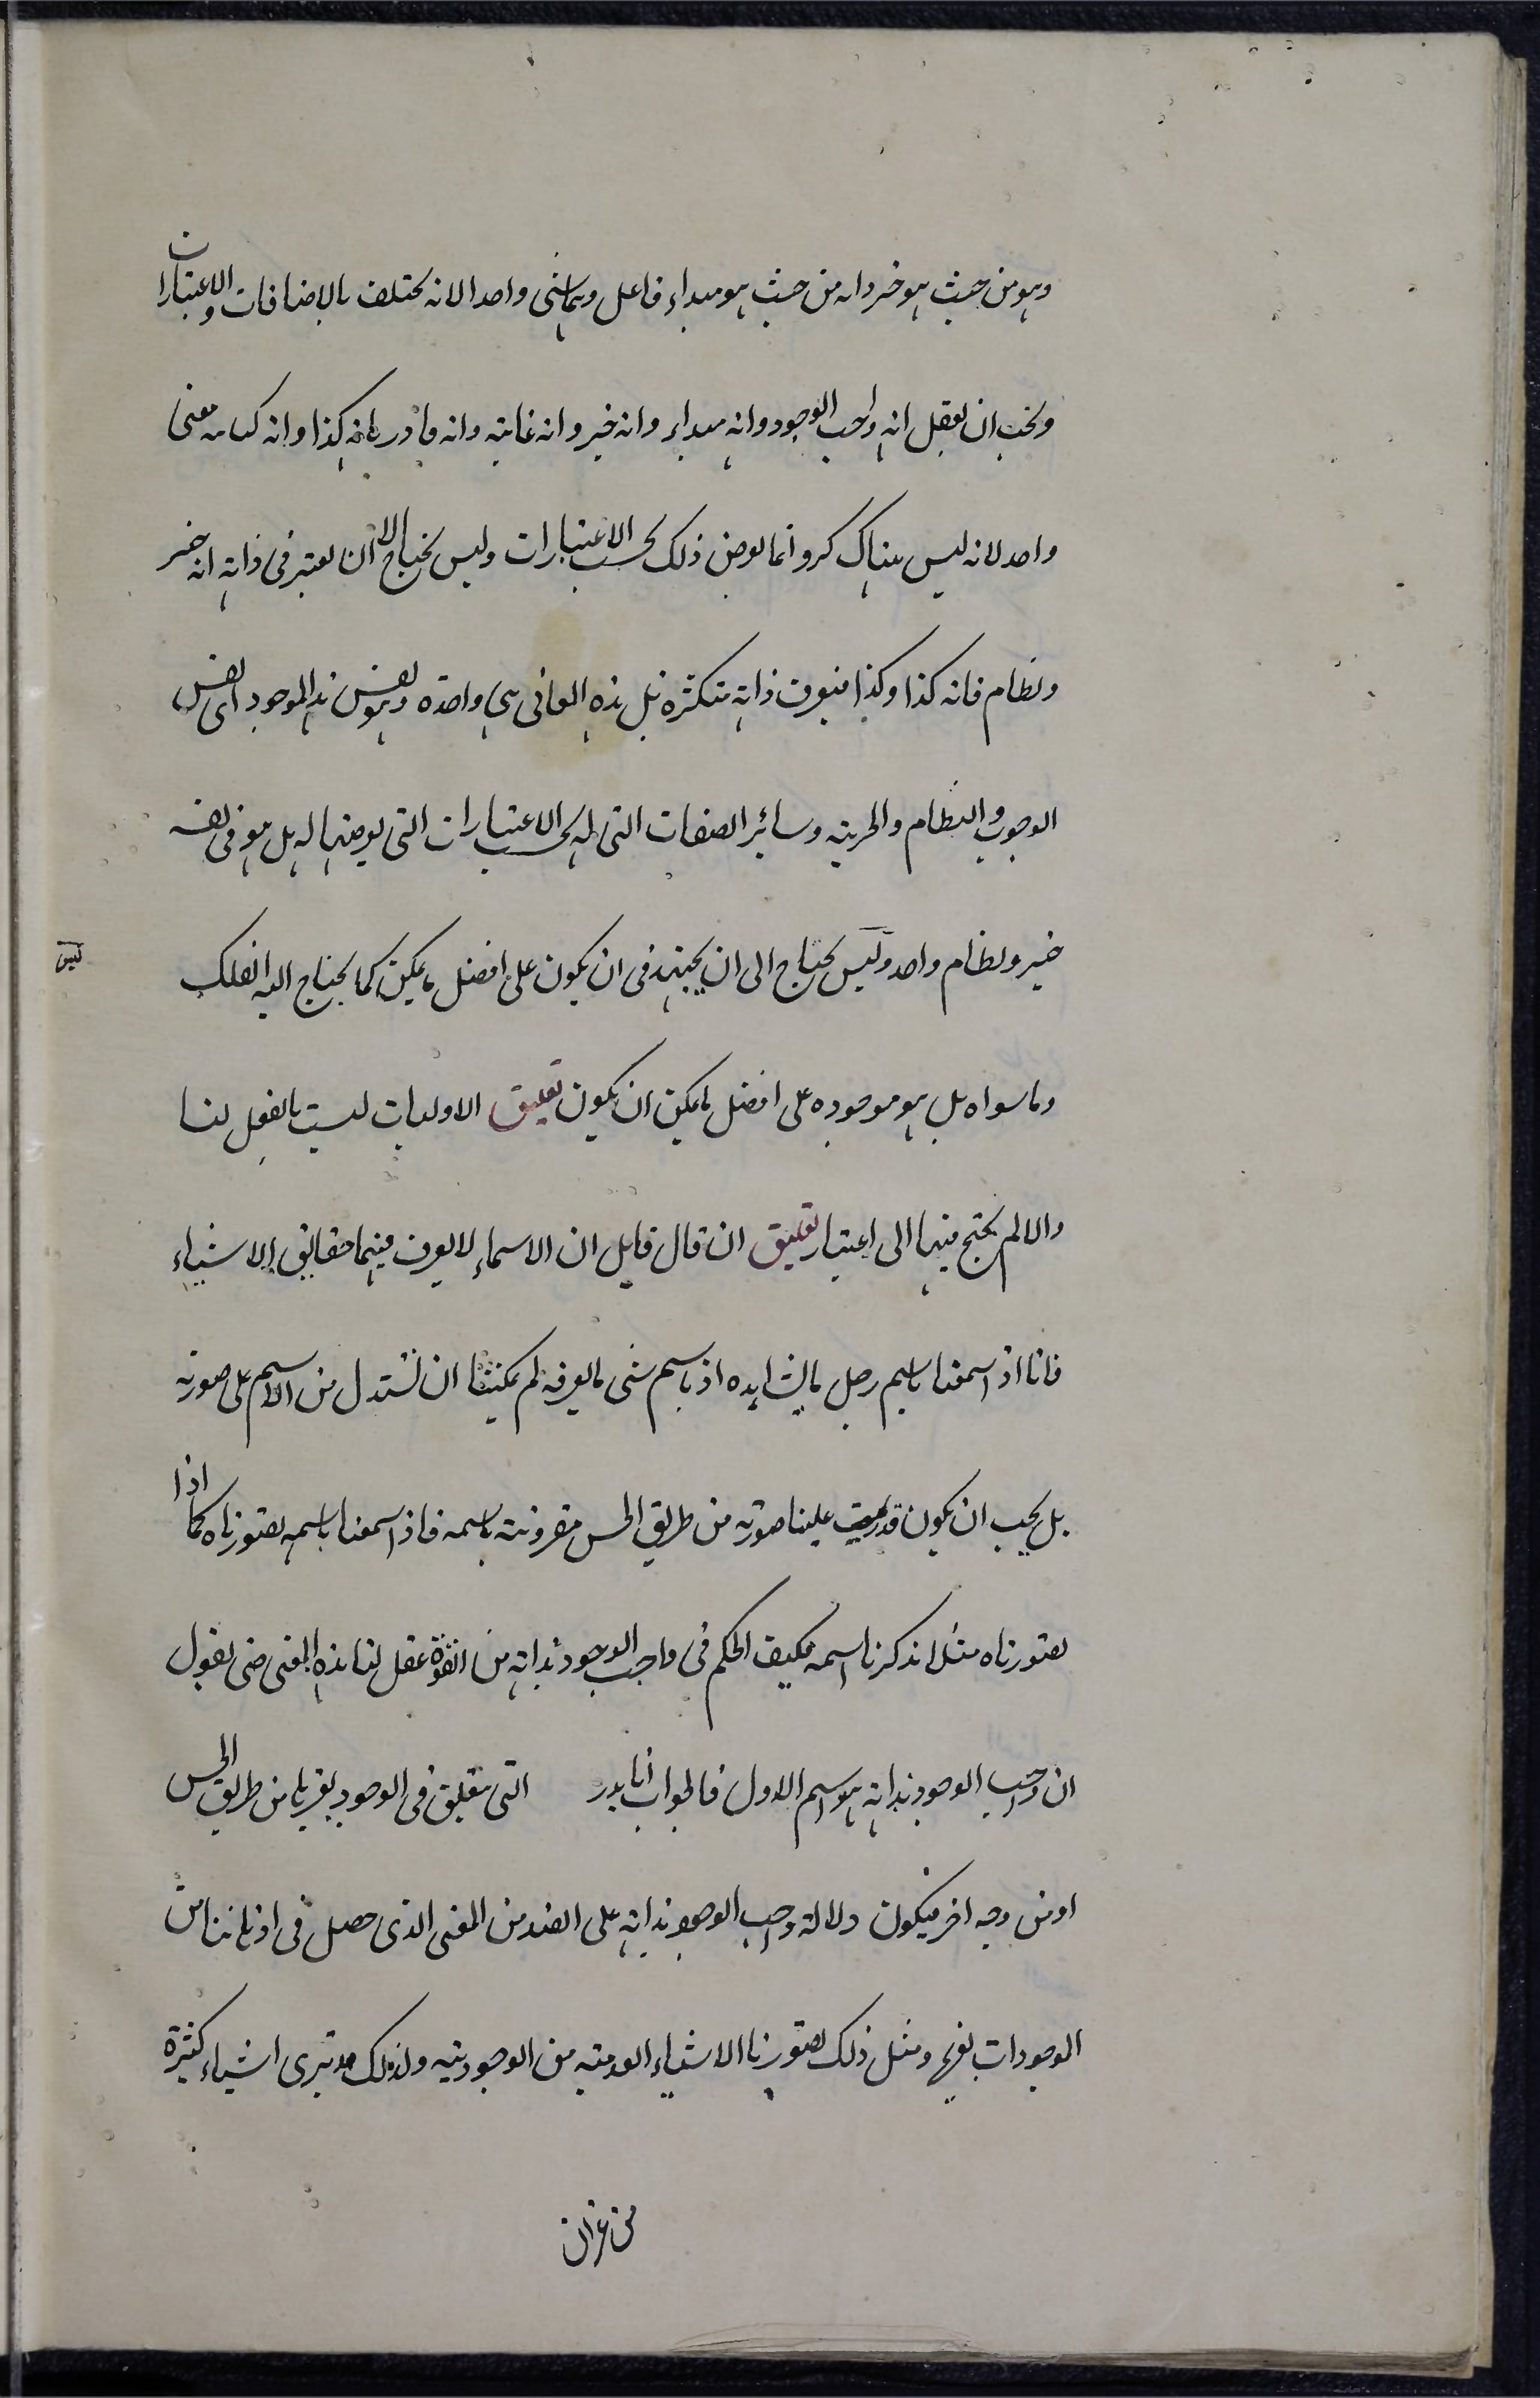 وهو من حيث هو خير وانه من حيث هو مبداء فاعل وهما شئ واحد الا انه يختلف بالاضافات والاعتبارات
ويجب ان يعقل انه واجب الوجود وانه مبداء وانه خير وانه غاية وانه قادر بانه كذا وانه كذا معنى
واحد لانه ليس هناك كثرة وانما يعرض ذلك بحسب الاعتبارات وليس يحتاج الا ان يعتبر في ذاته انه خير
ونظام فانه كذا وكذا فيعرف ذاته متكثرة بل هذه المعانى هى واحدة وهو نفس هذا الموجود اى نفس
الوجوب والنظام والخيرية وسائر الصفات التى له بحسب الاعتبارات التى يعرضها له بل هو فى نفسه
خير ونظام واحد وليس يحتاج الى ان يجتهد فى ان يكون على افضل ما يمكن كما يحتاج اليه الفلك
ليس
وما سواه بل هو موجوده على افضل ما يمكن ان يكون تعليق الاوليات ليست بالفعل لنا
والا لم يحتج فيها الى اعتبار تعليق ان قال قايل ان الاسماء لا يعرف منها حقايق الاشياء
فانا اذا سمعنا باسم رجل ما لم نشاهده او باسم شئ ما لم نعرفه لم يمكننا ان نستدل من الاسم على صورته
بل يجب ان يكون قد عليه علينا صورته من طريق الحس مقرونة باسمه فاذا سمعنا باسمه تصورناه كما اذا
تصورناه مثلا ذكرنا اسمه فكيف الحكم فى واجب الوجود بذاته من القوة عقل لنا هذه المعنى حتى نقول
ان واجب الوجود بذاته هو اسم الاول فالجواب انا التى تعليق فى الوجود من طريق الحس
او من وجه اخر فيكون دلالة واجب الوجود بذاته على الضد من المعنى الذى حصل فى اذهاننا من
الوجودات ومثل ذلك تصورنا الاشياء العدمية من الوجودية ولذلك قد ترى اشياء كثيرة
من غير ان